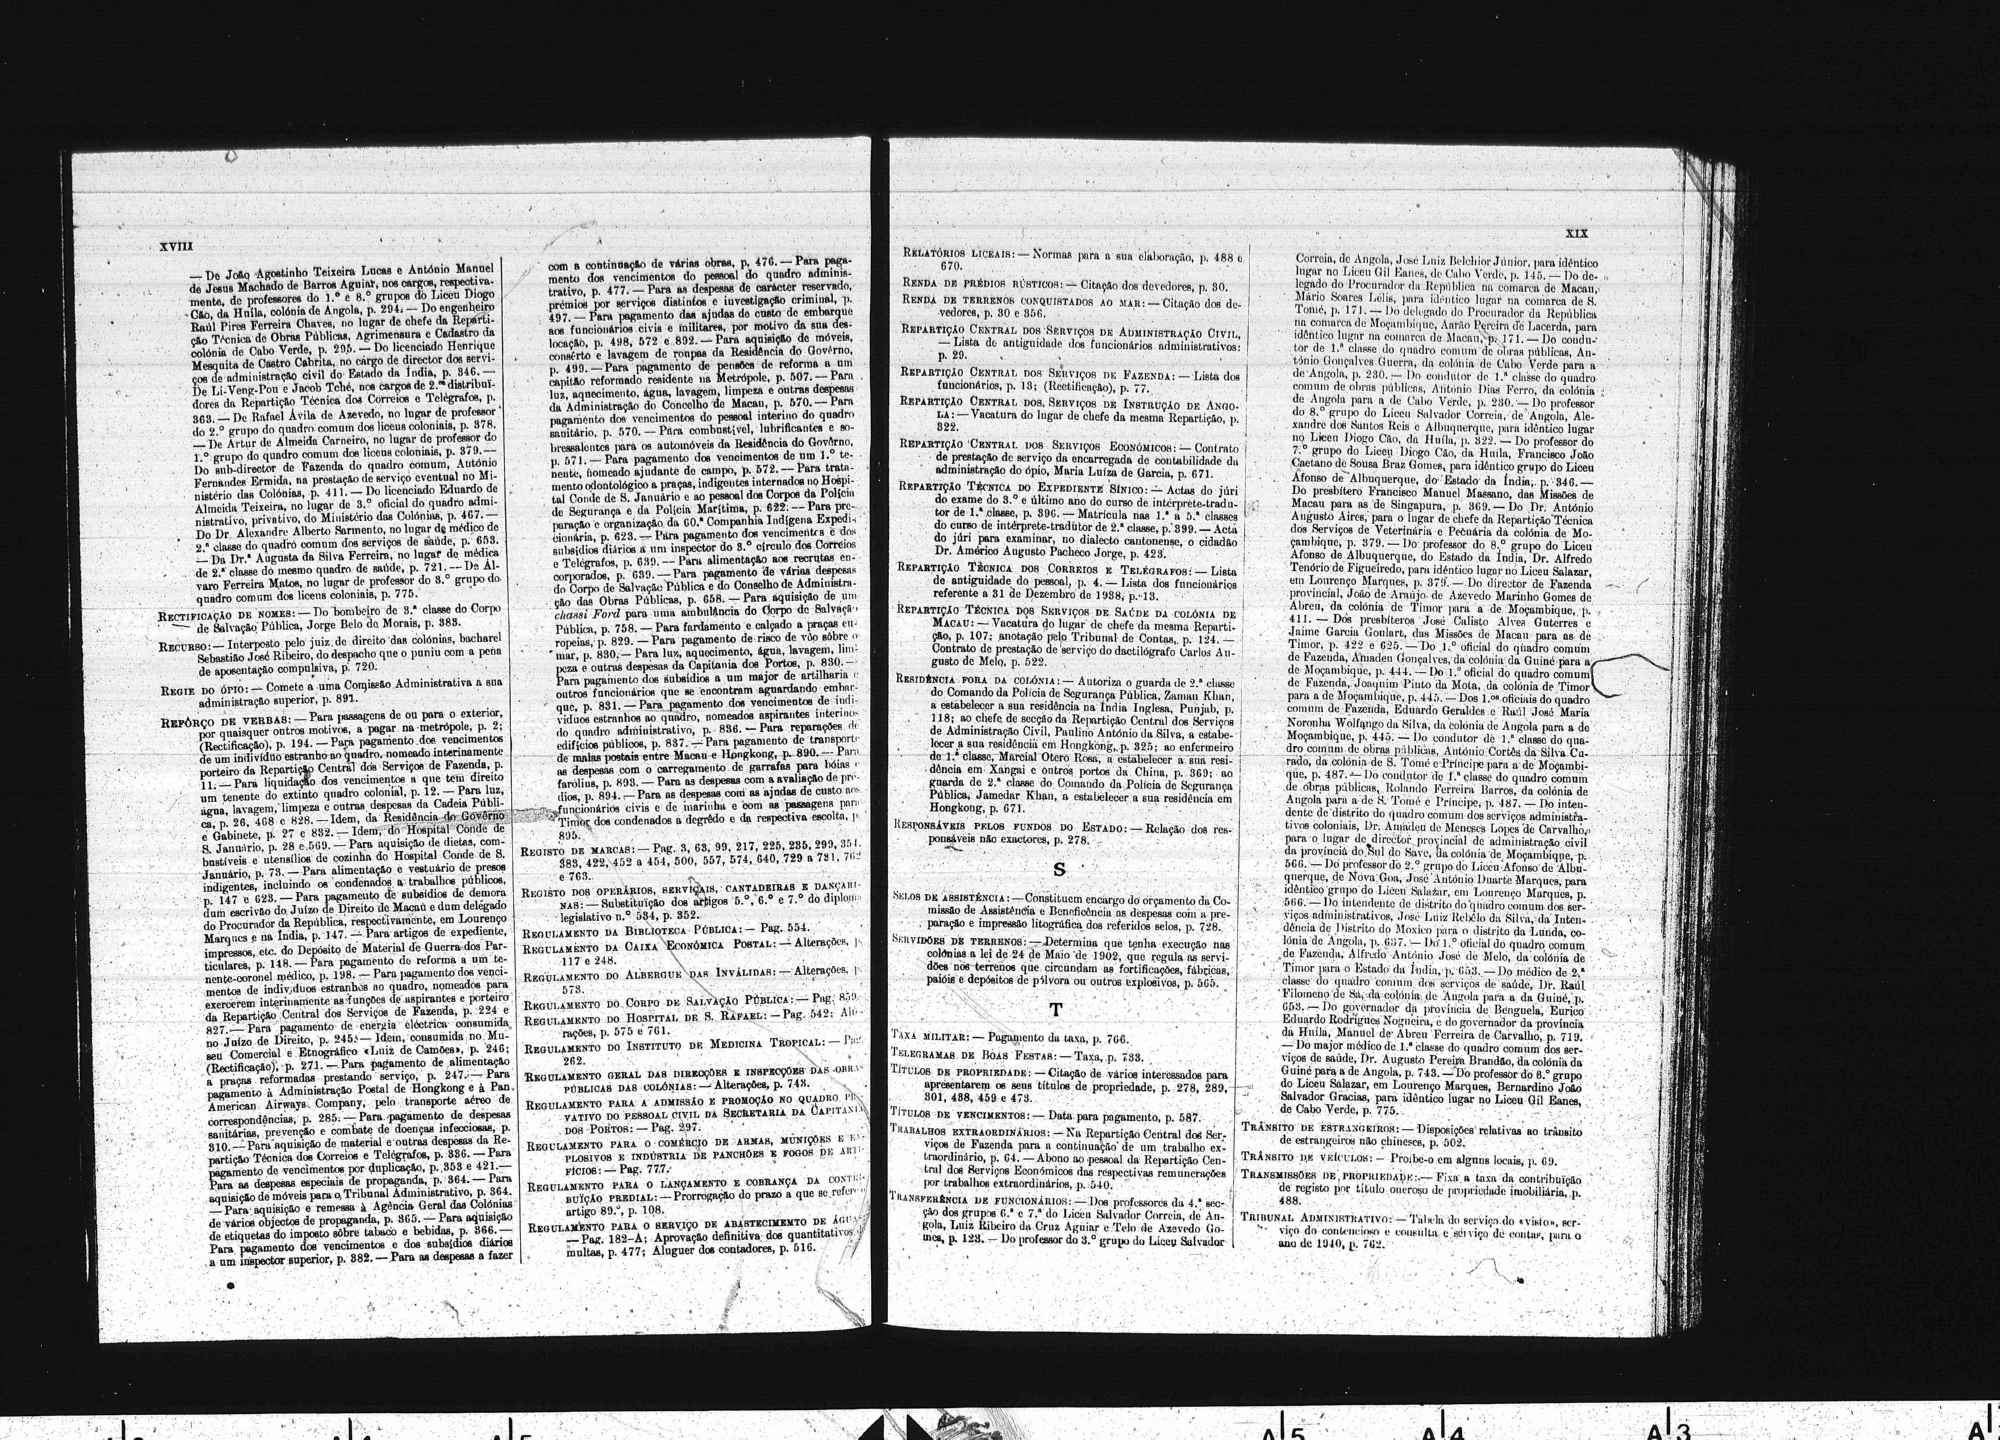 XVIII
— De João Agostinho Teixeira Lucas e António Manuel
de Jesus Machado de Barros Aguiar, nos cargos, respectiva-
mente, de professores do 1.º e 8.º grupos do Liceu Diogo
Cão, da Huíla, colónia de Angola, p. 294. — Do engenheiro
Raúl Pires Ferreira Chaves, no lugar de chefe da Reparti-
ção Técnica de Obras Públicas, Agrimensura e Cadastro da
colónia de Cabo Verde, p. 295. — Do licenciado Henrique
Mesquita de Castro Cabrita, no cargo de director dos servi-
ços de administração civil do Estado da Índia, p. 346. —
De Li-Veng-Pou e Jacob Tché, nos cargos de 2.ºs distribuï-
dores da Repartição Técnica dos Correios e Telégrafos, p.
363. — De Rafael Ávila de Azevedo, no lugar de professor
do 2.º grupo do quadro comum dos liceus coloniais, p. 378.
— De Artur de Almeida Carneiro, no lugar de professor do
1.º grupo do quadro comum dos liceus coloniais, p. 379. —
Do sub-director de Fazenda do quadro comum, António
Fernandes Ermida, na prestação de serviço eventual no Mi-
nistério das Colónias, p. 411. — Do licenciado Eduardo de
Almeida Teixeira, no lugar de 3.º oficial do quadro admi-
nistrativo, privativo, do Ministério das Colónias, p. 467. —
Do Dr. Alexandre Alberto Sarmento, no lugar de médico de
2.ª classe do quadro comum dos serviços de saúde, p. 653.
— Da Dr.ª Augusta da Silva Ferreira, no lugar de médica
de 2.ª classe do mesmo quadro de saúde, p. 721. — De Ál-
varo Ferreira Matos, no lugar de professor do 3.º grupo do
quadro comum dos liceus coloniais, p. 775.
RECTIFICAÇÃO DE NOMES: — Do bombeiro de 3.ª classe do Corpo
de Salvação Pública, Jorge Belo de Morais, p. 383.
RECURSO: — Interposto pelo juiz de direito das colónias, bacharel
Sebastião José Ribeiro, do despacho que o puniu com a pena
de aposentação compulsiva, p. 720.
REGIE DO ÓPIO: — Comete a uma Comissão Administrativa a sua
administração superior, p. 891.
REFÔRÇO DE VERBAS: — Para passagens de ou para o exterior,
por quaisquer outros motivos, a pagar na metrópole, p. 2;
(Rectificação), p. 194. — Para pagamento dos vencimentos
de um indivíduo estranho ao quadro, nomeado interinamente
porteiro da Repartição Central dos Serviços de Fazenda, p.
11. — Para liquidação dos vencimentos a que tem direito
um tenente do extinto quadro colonial, p. 12. — Para luz,
água, lavagem, limpeza e outras despesas da Cadeia Públi-
ca, p. 26, 468 e 828. — Idem, da Residência do Govêrno
e Gabinete, p. 27 e 832. — Idem, do Hospital Conde de
S. Januário, p. 28 e 569. — Para aquisição de dietas, com-
bustíveis e utensílios de cozinha do Hospital Conde de S.
Januário, p. 73. — Para alimentação e vestuário de presos
indigentes, incluindo os condenados a trabalhos públicos,
p. 147 e 623. — Para pagamento de subsídios de demora
dum escrivão do Juízo de Direito de Macau e dum delegado
do Procurador da República, respectivamente, em Lourenço
Marques e na Índia, p. 147. — Para artigos de expediente,
impressos, etc. do Depósito de Material de Guerra dos Par-
ticulares, p. 148. — Para pagamento de reforma a um te-
nente-coronel médico, p. 198. — Para pagamento dos venci-
mentos de indivíduos estranhos ao quadro, nomeados para
exercerem interinamente as funções de aspirantes e porteiro
da Repartição Central dos Serviços de Fazenda, p. 224 e
827. — Para pagamento de energia eléctrica consumida
no Juízo de Direito, p. 245. — Idem, consumida no Mu-
seu Comercial e Etnográfico «Luiz de Camões», p. 246;
(Rectificação), p. 271. — Para pagamento de alimentação
a praças reformadas prestando serviço, p. 247. — Para
pagamento à Administração Postal de Hongkong e à Pan
American Airways Company, pelo transporte aéreo de
correspondências, p. 285. — Para pagamento de despesas
sanitárias, prevenção e combate de doenças infecciosas, p.
310. — Para aquisição de material e outras despesas da Re-
partição Técnica dos Correios e Telégrafos, p. 336. — Para
pagamento de vencimentos por duplicação, p. 353 e 421. —
Para as despesas especiais de propaganda, p. 364. — Para
aquisição de móveis para o Tribunal Administrativo, p. 364.
— Para aquisição e remessa à Agência Geral das Colónias
de vários objectos de propaganda, p. 365. — Para aquisição
de etiquetas do imposto sôbre tabaco e bebidas, p. 366. —
Para pagamento dos vencimentos e dos subsídios diários
a um inspector superior, p. 382. — Para as despesas a fazer
com a continuação de várias obras, p. 476. — Para paga-
mento dos vencimentos do pessoal do quadro adminis-
trativo, p. 477. — Para as despesas de carácter reservado,
prémios por serviços distintos e investigação criminal, p.
497. — Para pagamento das ajudas de custo de embarque
aos funcionários civis e militares, por motivo da sua des-
locação, p. 498, 572 e 892. — Para aquisição de móveis,
consêrto e lavagem de roupas da Residência do Govêrno,
p. 499. — Para pagamento de pensões de reforma a um
capitão reformado residente na Metrópole, p. 507. — Para
luz, aquecimento, água, lavagem, limpeza e outras despesas
da Administração do Concelho de Macau, p. 570. — Para
pagamento dos vencimentos do pessoal interino do quadro
sanitário, p. 570. — Para combustível, lubrificantes e so-
bressalentes para os automóveis da Residência do Govêrno,
p. 571. — Para pagamento dos vencimentos de um 1.º te-
nente, nomeado ajudante de campo, p. 572. — Para trata-
mento odontológico a praças, indigentes internados no Hospi-
tal Conde de S. Januário e ao pessoal dos Corpos da Polícia
de Segurança e da Polícia Marítima, p. 622. — Para pre-
paração e organização da 60.ª Companhia Indígena Expedi-
cionária, p. 623. — Para pagamento dos vencimentos e dos
subsídios diários a um inspector do 3.º círculo dos Correios
e Telégrafos, p. 639. — Para alimentação aos recrutas en-
corporados, p. 639. — Para pagamento de várias despesas
do Corpo de Salvação Pública e do Conselho de Administra-
ção das Obras Públicas, p. 658. — Para aquisição de um
chassi Ford para uma ambulância do Corpo de Salvação
Pública, p. 758. — Para fardamento e calçado a praças eu-
ropeias, p. 829. — Para pagamento de risco de vôo sôbre o
mar, p. 830. — Para luz, aquecimento, água, lavagem, lim-
peza e outras despesas da Capitania dos Portos, p. 830. —
Para pagamento dos subsídios a um major de artilharia e
outros funcionários que se encontram aguardando embar-
que, p. 831. — Para pagamento dos vencimentos de indi-
víduos estranhos ao quadro, nomeados aspirantes interinos
do quadro administrativo, p. 836. — Para reparações de
edifícios públicos, p. 837. — Para pagamento de transporte
de malas postais entre Macau e Hongkong, p. 890. — Para
as despesas com o carregamento de garrafas para bóias e
farolins, p. 893. — Para as despesas com a avaliação de pré-
dios, p. 894. — Para as despesas com as ajudas de custo aos
funcionários civis e de marinha e com as passagens para
Timor dos condenados a degrêdo e da respectiva escolta, p.
895.
REGISTO DE MARCAS: — Pag. 3, 63, 99, 217, 225, 235, 299, 351,
383, 422, 452 a 454, 500, 557, 574, 640, 729 a 731, 762
e 763.
REGISTO DOS OPERÁRIOS, SERVIÇAIS, CANTADEIRAS E DANÇARI-
NAS: — Substituïção dos artigos 5.º, 6.º e 7.º do diploma
legislativo n.º 534, p. 352.
REGULAMENTO DA BIBLIOTECA PÚBLICA: — Pag. 554.
REGULAMENTO DA CAIXA ECONÓMICA POSTAL: — Alterações, p.
117 e 248.
REGULAMENTO DO ALBERGUE DAS INVÁLIDAS: — Alterações, p.
573.
REGULAMENTO DO CORPO DE SALVAÇÃO PÚBLICA: — Pag. 859.
REGULAMENTO DO HOSPITAL DE S. RAFAEL: — Pag. 542; Alte-
rações, p. 575 e 761.
REGULAMENTO DO INSTITUTO DE MEDICINA TROPICAL: — Pag.
262.
REGULAMENTO GERAL DAS DIRECÇÕES E INSPECÇÕES DAS OBRAS
PÚBLICAS DAS COLÓNIAS: — Alterações, p. 743.
REGULAMENTO PARA A ADMISSÃO E PROMOÇÃO NO QUADRO PRI-
VATIVO DO PESSOAL CIVIL DA SECRETARIA DA CAPITANIA
DOS PORTOS: — Pag. 297.
REGULAMENTO PARA O COMÉRCIO DE ARMAS, MUNIÇÕES E EX-
PLOSIVOS E INDÚSTRIA DE PANCHÕES E FOGOS DE ARTI-
FÍCIOS: — Pag. 777.
REGULAMENTO PARA O LANÇAMENTO E COBRANÇA DA CONTRI-
BUÏÇÃO PREDIAL: — Prorrogação do prazo a que se refere o
artigo 89.º, p. 108.
REGULAMENTO PARA O SERVIÇO DE ABASTECIMENTO DE ÁGUA:
— Pag. 182-A; Aprovação definitiva dos quantitativos
multas, p. 477; Aluguer dos contadores, p. 516.
XIX
RELATÓRIOS LICEAIS: — Normas para a sua elaboração, p. 488 e
670.
RENDA DE PRÉDIOS RÚSTICOS: — Citação dos devedores, p. 30.
RENDA DE TERRENOS CONQUISTADOS AO MAR: — Citação dos de-
vedores, p. 30 e 356.
REPARTIÇÃO CENTRAL DOS SERVIÇOS DE ADMINISTRAÇÃO CIVIL,
— Lista de antiguidade dos funcionários administrativos:
p. 29.
REPARTIÇÃO CENTRAL DOS SERVIÇOS DE FAZENDA: — Lista dos
funcionários, p. 13; (Rectificação), p. 77.
REPARTIÇÃO CENTRAL DOS SERVIÇOS DE INSTRUÇÃO DE ANGO-
LA: — Vacatura do lugar de chefe da mesma Repartição, p.
322.
REPARTIÇÃO CENTRAL DOS SERVIÇOS ECONÓMICOS: — Contrato
de prestação de serviço da encarregada de contabilidade da
administração do ópio, Maria Luíza de Garcia, p. 671.
REPARTIÇÃO TÉCNICA DO EXPEDIENTE SÍNICO: — Actas do júri
do exame do 3.º e último ano do curso de intérprete-tradu-
tor de 1.ª classe, p. 396. — Matrícula nas 1.ª a 5.ª classes
do curso de intérprete-tradutor de 2.ª classe, p. 399. — Acta
do júri para examinar, no dialecto cantonense, o cidadão
Dr. Américo Augusto Pacheco Jorge, p. 423.
REPARTIÇÃO TÉCNICA DOS CORREIOS E TELÉGRAFOS: — Lista
de antiguidade do pessoal, p. 4. — Lista dos funcionários
referente a 31 de Dezembro de 1938, p. 13.
REPARTIÇÃO TÉCNICA DOS SERVIÇOS DE SAÚDE DA COLÓNIA DE
MACAU: — Vacatura do lugar de chefe da mesma Reparti-
ção, p. 107; anotação pelo Tribunal de Contas, p. 124. —
Contrato de prestação de serviço do dactilógrafo Carlos Au-
gusto de Melo, p. 522.
RESIDÊNCIA FORA DA COLÓNIA: — Autoriza o guarda de 2.ª classe
do Comando da Polícia de Segurança Pública, Zaman Khan,
a estabelecer a sua residência na Índia Inglesa, Punjab, p.
118; ao chefe de secção da Repartição Central dos Serviços
de Administração Civil, Paulino António da Silva, a estabe-
lecer a sua residência em Hongkong, p. 325; ao enfermeiro
de 1.ª classe, Marcial Otero Rosa, a estabelecer a sua resi-
dência em Xangai e outros portos da China, p. 369; ao
guarda de 2.ª classe do Comando da Polícia de Segurança
Pública, Jamedar Khan, a estabelecer a sua residência em
Hongkong, p. 671.
RESPONSÁVEIS PELOS FUNDOS DO ESTADO: — Relação dos res-
ponsáveis não exactores, p. 278.
S
SELOS DE ASSISTÊNCIA: — Constituem encargo do orçamento da Co-
missão de Assistência e Beneficência as despesas com a pre-
paração e impressão litográfica dos referidos selos, p. 728.
SERVIDÕES DE TERRENOS: — Determina que tenha execução nas
colónias a lei de 24 de Maio de 1902, que regula as servi-
dões nos terrenos que circundam as fortificações, fábricas,
paióis e depósitos de pólvora ou outros explosivos, p. 565.
T
TAXA MILITAR: — Pagamento da taxa, p. 766.
TELEGRAMAS DE BOAS FESTAS: — Taxa, p. 733.
TÍTULOS DE PROPRIEDADE: — Citação de vários interessados para
apresentarem os seus títulos de propriedade, p. 278, 289,
301, 438, 459 e 473.
TÍTULOS DE VENCIMENTOS: — Data para pagamento, p. 587.
TRABALHOS EXTRAORDINÁRIOS: — Na Repartição Central dos Ser-
viços de Fazenda para a continuação de um trabalho ex-
traordinário, p. 64. — Abono ao pessoal da Repartição Cen-
tral dos Serviços Económicos das respectivas remunerações
por trabalhos extraordinários, p. 540.
TRANSFERÊNCIA DE FUNCIONÁRIOS: — Dos professores da 4.ª sec-
ção dos grupos 6.º e 7.º do Liceu Salvador Correia, de An-
gola, Luiz Ribeiro da Cruz Aguiar e Telo de Azevedo Go-
mes, p. 123. — Do professor do 3.º grupo do Liceu Salvador
Correia, de Angola, José Luiz Belchior Júnior, para idêntico
lugar no Liceu Gil Eanes, de Cabo Verde, p. 145. — Do de-
legado do Procurador da República na comarca de Macau,
Mário Soares Lélis, para idêntico lugar na comarca de S.
Tomé, p. 171. — Do delegado do Procurador da República
na comarca de Moçambique, Aarão Pereira de Lacerda, para
idêntico lugar na comarca de Macau, p. 171. — Do condu-
tor de 1.ª classe do quadro comum de obras públicas, An-
tónio Gonçalves Guerra, da colónia de Cabo Verde para a
de Angola, p. 230. — Do condutor de 1.ª classe do quadro
comum de obras públicas, António Dias Ferro, da colónia
de Angola para a de Cabo Verde, p. 230. — Do professor
do 8.º grupo do Liceu Salvador Correia, de Angola, Ale-
xandre dos Santos Reis e Albuquerque, para idêntico lugar
no Liceu Diogo Cão, da Huíla, p. 322. — Do professor do
7.º grupo do Liceu Diogo Cão, da Huíla, Francisco João
Caetano de Sousa Braz Gomes, para idêntico grupo do Liceu
Afonso de Albuquerque, do Estado da Índia, p. 346. —
Do presbítero Francisco Manuel Massano, das Missões de
Macau para as de Singapura, p. 369. — Do Dr. António
Augusto Aires, para o lugar de chefe da Repartição Técnica
dos Serviços de Veterinária e Pecuária da colónia de Mo-
çambique, p. 379. — Do professor do 8.º grupo do Liceu
Afonso de Albuquerque, do Estado da Índia, Dr. Alfredo
Tenório de Figueiredo, para idêntico lugar no Liceu Salazar,
em Lourenço Marques, p. 379. — Do director de Fazenda
provincial, João de Araújo de Azevedo Marinho Gomes de
Abreu, da colónia de Timor para a de Moçambique, p.
411. — Dos presbíteros José Calisto Alves Guterres e
Jaime Garcia Goulart, das Missões de Macau para as de
Timor, p. 422 e 625. — Do 1.º oficial do quadro comum
de Fazenda, Amadeu Gonçalves, da colónia da Guiné para a
de Moçambique, p. 444. — Do 1.º oficial do quadro comum
de Fazenda, Joaquim Pinto da Mota, da colónia de Timor
para a de Moçambique, p. 445. — Dos 1.ºs oficiais do quadro
comum de Fazenda, Eduardo Geraldes e Raúl José Maria
Noronha Wolfango da Silva, da colónia de Angola para a de
Moçambique, p. 445. — Do condutor de 1.ª classe do qua-
dro comum de obras públicas, António Cortês da Silva Cu-
rado, da colónia de S. Tomé e Príncipe para a de Moçambi-
que, p. 487. — Do condutor de 1.ª classe do quadro comum
de obras públicas, Rolando Ferreira Barros, da colónia de
Angola para a de S. Tomé e Príncipe, p. 487. — Do inten-
dente de distrito do quadro comum dos serviços administra-
tivos coloniais, Dr. Amadeu de Meneses Lopes de Carvalho,
para o lugar de director provincial de administração civil
da província do Sul do Save, da colónia de Moçambique, p.
566. — Do professor do 2.º grupo do Liceu Afonso de Albu-
querque, de Nova Goa, José António Duarte Marques, para
idêntico grupo do Liceu Salazar, em Lourenço Marques, p.
566. — Do intendente de distrito do quadro comum dos ser-
viços administrativos, José Luiz Rebêlo da Silva, da Inten-
dência de Distrito do Moxico para o distrito da Lunda, co-
lónia de Angola, p. 637. — Do 1.º oficial do quadro comum
de Fazenda, Alfredo António José de Melo, da colónia de
Timor para o Estado da Índia, p. 653. — Do médico de 2.ª
classe do quadro comum dos serviços de saúde, Dr. Raúl
Filomeno de Sá, da colónia de Angola para a da Guiné, p.
653. — Do governador da província de Benguela, Eurico
Eduardo Rodrigues Nogueira, e do governador da província
da Huíla, Manuel de Abreu Ferreira de Carvalho, p. 719.
— Do major médico de 1.ª classe do quadro comum dos ser-
viços de saúde, Dr. Augusto Pereira Brandão, da colónia da
Guiné para a de Angola, p. 743. — Do professor do 8.º grupo
do Liceu Salazar, em Lourenço Marques, Bernardino João
Salvador Gracias, para idêntico lugar no Liceu Gil Eanes,
de Cabo Verde, p. 775.
TRÂNSITO DE ESTRANGEIROS: — Disposições relativas ao trânsito
de estrangeiros não chineses, p. 502.
TRÂNSITO DE VEÍCULOS: — Proíbe-o em alguns locais, p. 69.
TRANSMISSÕES DE PROPRIEDADE: — Fixa a taxa da contribuïção
de registo por título oneroso de propriedade imobiliária, p.
488.
TRIBUNAL ADMINISTRATIVO: — Tabela do serviço do «visto», ser-
viço do contencioso e consulta e serviço de contas, para o
ano de 1940, p. 762.
A|5
A|4
A|3